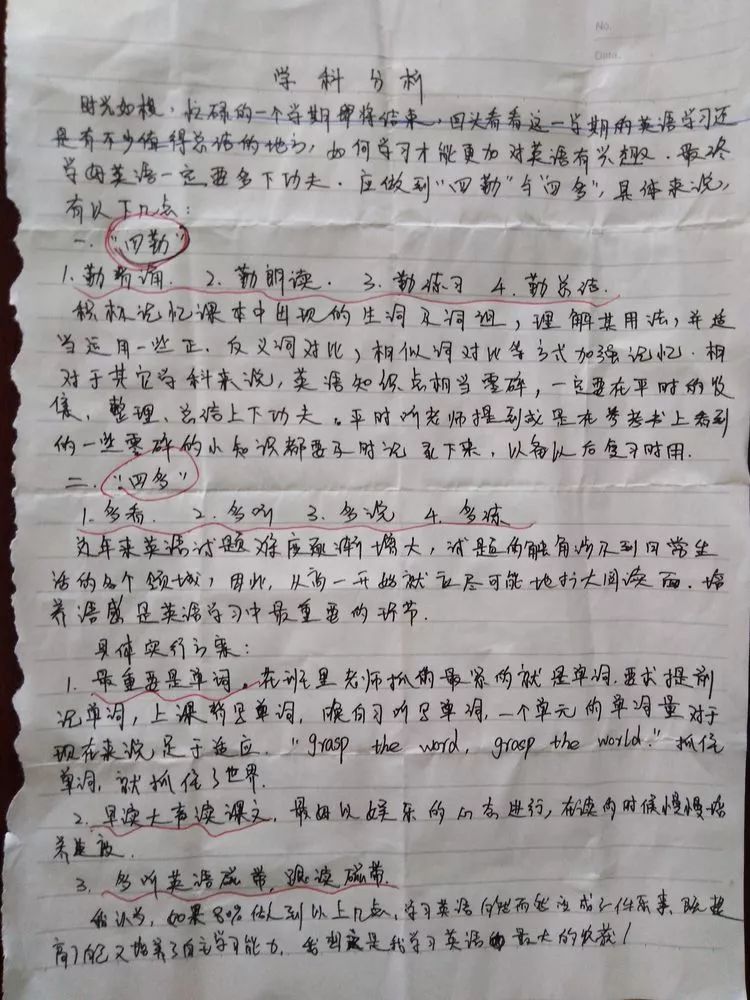 No.
Date.
学科分析
时光如梭,忙碌的一个学期即将结束,回头看看这一学期的英语学习还
是有不少值得总结的地方,如何学习才能更加对英语有兴趣.最终
学好英语一定要多下功夫.应做到"四勤"与"四多",具体来说,
有以下几点:
一."四勤"
1.勤背诵. 2.勤朗读. 3.勤练习 4.勤总结.
积极记忆课本中出现的生词及词组,理解其用法,并适
当运用一些正.反义词对比,相似词对比等方式加强记忆.相
对于其它学科来说,英语知识点相当零碎,一定要在平时的收
集,整理、总结上下功夫。平时听老师提到或是在参考书上看到
的一些零碎的小知识都要及时记录下来,以备以后复习时用.
二."四多"
1.多看. 2.多听 3.多说 4.多练
近年来英语试题难度逐渐增大,试题的触角涉及到日常生
活的各个领域,因此,从高一开始就应尽可能地扩大阅读面.培
养语感是英语学习中最重要的环节.
具体实行方案:
1.最重要是单词。在班里老师抓的最紧的就是单词.要求提前
记单词,上课听写单词,晚自习听写单词,一个单元的单词量对于
现在来说足于适应."grasp the word, grasp the world."抓住
单词,就抓住了世界.
2.早读大声读课文,最好以娱乐的心态进行,在读的时候慢慢培
养语感.
3.多听英语磁带,跟读磁带.
我认为,如果能做到以上几点,学习英语自然而然应成了一件乐事,既提
高了自己又培养了自主学习能力,我想这是我学习英语的最大的收获!